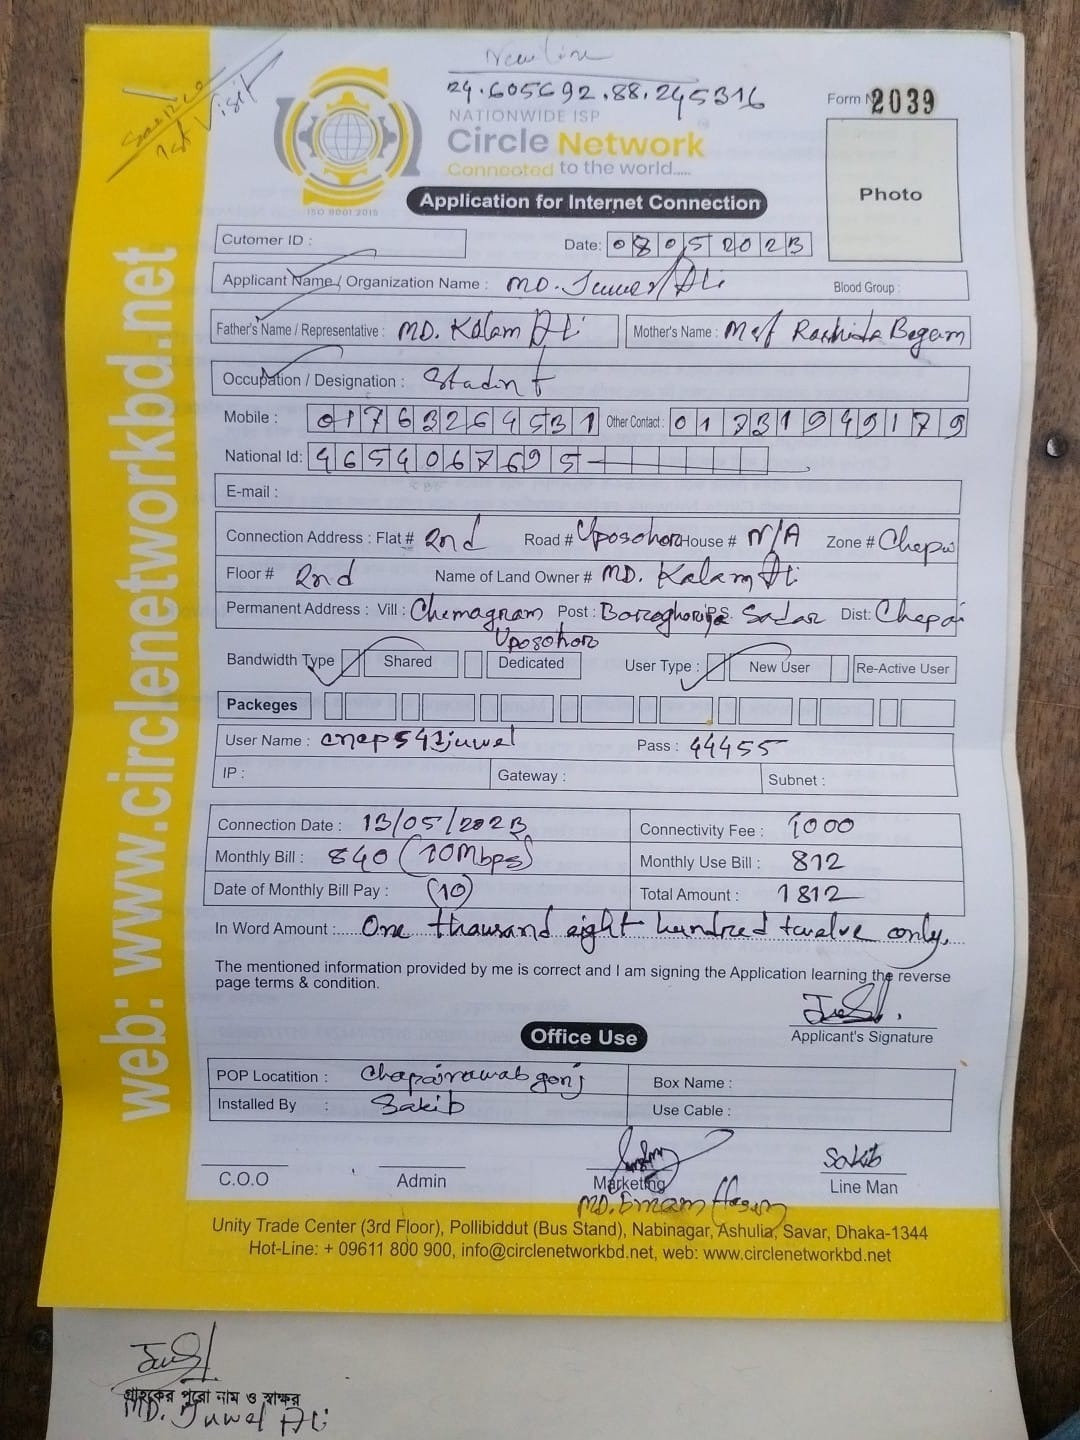 New Line
24.605692.88.245316
1st Visit
NATIONWIDE ISP
Circle Network
Connected to the world.....
ISO 9001:2015
Form No 2039
Photo
Application for Internet Connection
Cutomer ID :
Date: 08052023
Applicant Name / Organization Name : MD. Juwel Ali Blood Group :
Father's Name / Representative : MD. Kalam Ali Mother's Name : Mst Rashida Begam
Occupation / Designation : Stadint
Mobile : 01763264531 Other Contact : 01731949179
National Id: 4654067695
E-mail :
Connection Address : Flat # 2nd Road # Uposohor House # N/A Zone # Chepai
Floor # 2nd Name of Land Owner # MD. Kalam Ali
Permanent Address : Vill : Chemagram Post : Baroghoriya P.S. Sadar Dist: Chepai
Uposohoro
Bandwidth Type Shared Dedicated User Type : New User Re-Active User
Packeges
User Name : cnap541juwel Pass : 44455
IP : Gateway : Subnet :
Connection Date : 13/05/2023 Connectivity Fee : 1000
Monthly Bill : 840 (10Mbps) Monthly Use Bill : 812
Date of Monthly Bill Pay : (10) Total Amount : 1812
In Word Amount :..... One thousand eight hundred twelve only.
The mentioned information provided by me is correct and I am signing the Application learning the reverse
page terms & condition.
Applicant's Signature
Office Use
POP Locatition : Chapainawabgonj Box Name :
Installed By : Sakib Use Cable :
Sakib
C.O.O Admin Marketing Line Man
MD. Emam Hasan
Unity Trade Center (3rd Floor), Pollibiddut (Bus Stand), Nabinagar, Ashulia, Savar, Dhaka-1344
Hot-Line: + 09611 800 900, info@circlenetworkbd.net, web: www.circlenetworkbd.net
web: www.circlenetworkbd.net
গ্রাহকের পুরো নাম ও স্বাক্ষর
MD. Juwel Ali